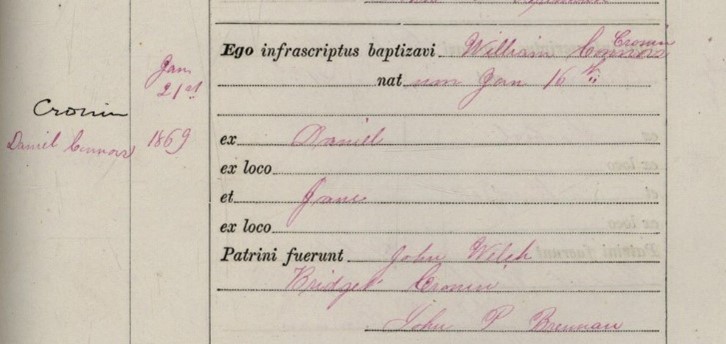 Jan
21st
1869
Cronin
Daniel Connors
Ego infrascriptus baptizavi William Connors
Cronin
nat Jan 16th
ex Daniel
ex loco
et Jane
ex loco
Patrini fuerunt John Welch
Bridget Cronin
John P Brennan